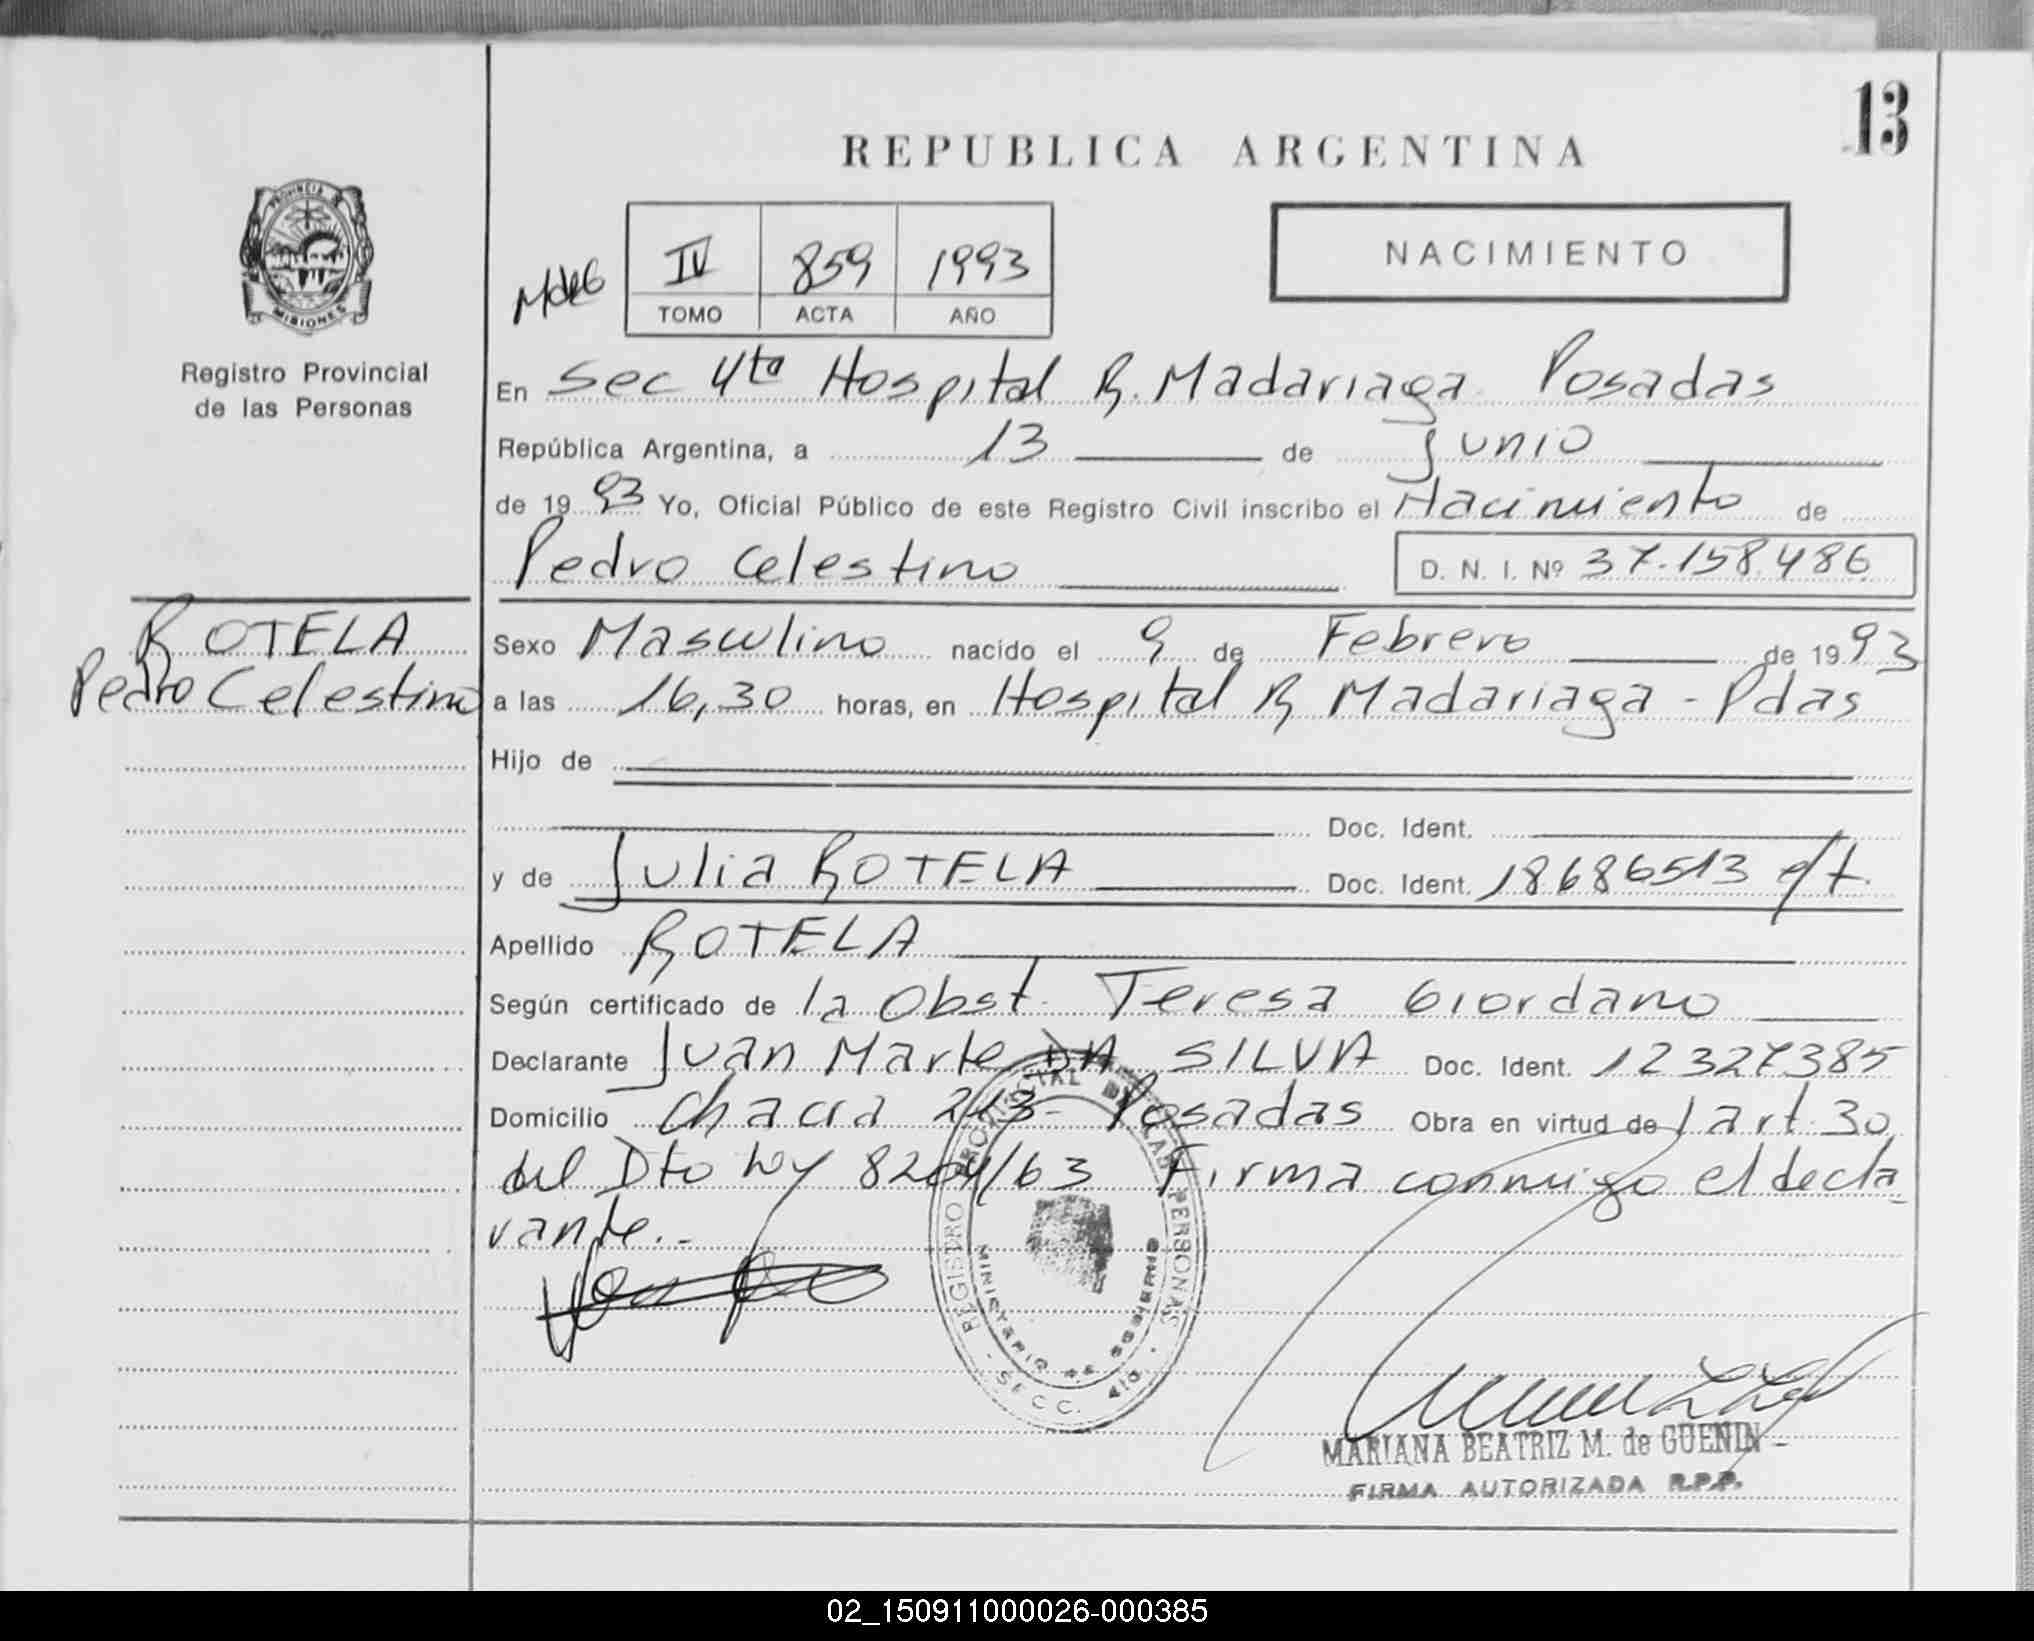 13
REPUBLICA ARGENTINA
PROVINCIA DE
MISIONES
Registro Provincial
de las Personas
NACIMIENTO
MdeG
IV 859 1993
TOMO ACTA AÑO
En Sec 4ta Hospital R. Madariaga Posadas
República Argentina, a 13 de Junio
de 1993 Yo, Oficial Público de este Registro Civil inscribo el Nacimiento de
Pedro Celestino D. N. I. Nº 37.158.486
ROTELA
Pedro Celestino
Sexo Masculino nacido el 9 de Febrero de 1993
a las 16,30 horas, en Hospital R Madariaga - Pdas
Hijo de
Doc. Ident.
y de Julia ROTELA Doc. Ident. 18686513 e/t.
Apellido ROTELA
Según certificado de la Obst. Teresa Giordano
Declarante Juan Marte DA SILVA Doc. Ident. 12327385
Domicilio Chacra 213- Posadas Obra en virtud del art. 30
del Dto Ley 8204/63 Firma conmigo el decla
rante.-
REGISTRO PROVINCIAL DE LAS PERSONAS
MINISTERIO DE GOBIERNO
- SECC. 4ta. -
MARIANA BEATRIZ M. de GUENIN
FIRMA AUTORIZADA R.P.P.
02_150911000026-000385